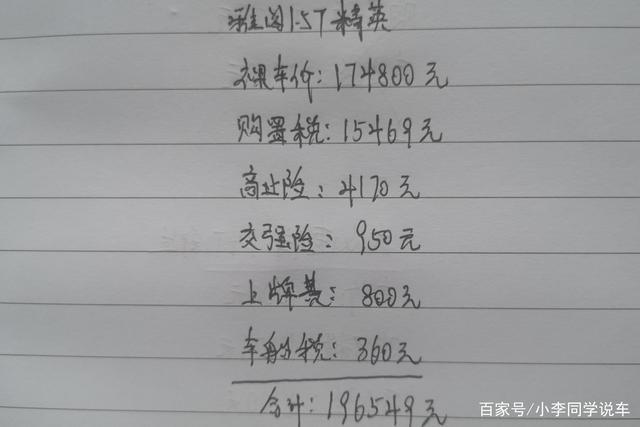 雅阁1.5T精英
裸车价:174800元
购置税:15469元
商业险:4170元
交强险:950元
上牌费:800元
车船税:360元
合计:196549元
百家号/小李同学说车